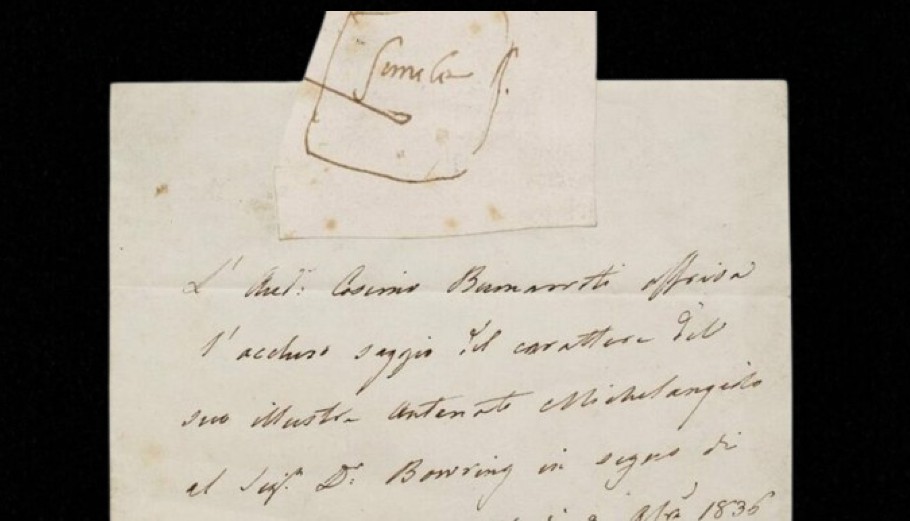 L' Aud.: Cosimo Buonarroti offriva
l'accluso saggio del carattere del
suo illustre antenato Michelangiolo
al Sig.r D.r Bowring in segno di
1836